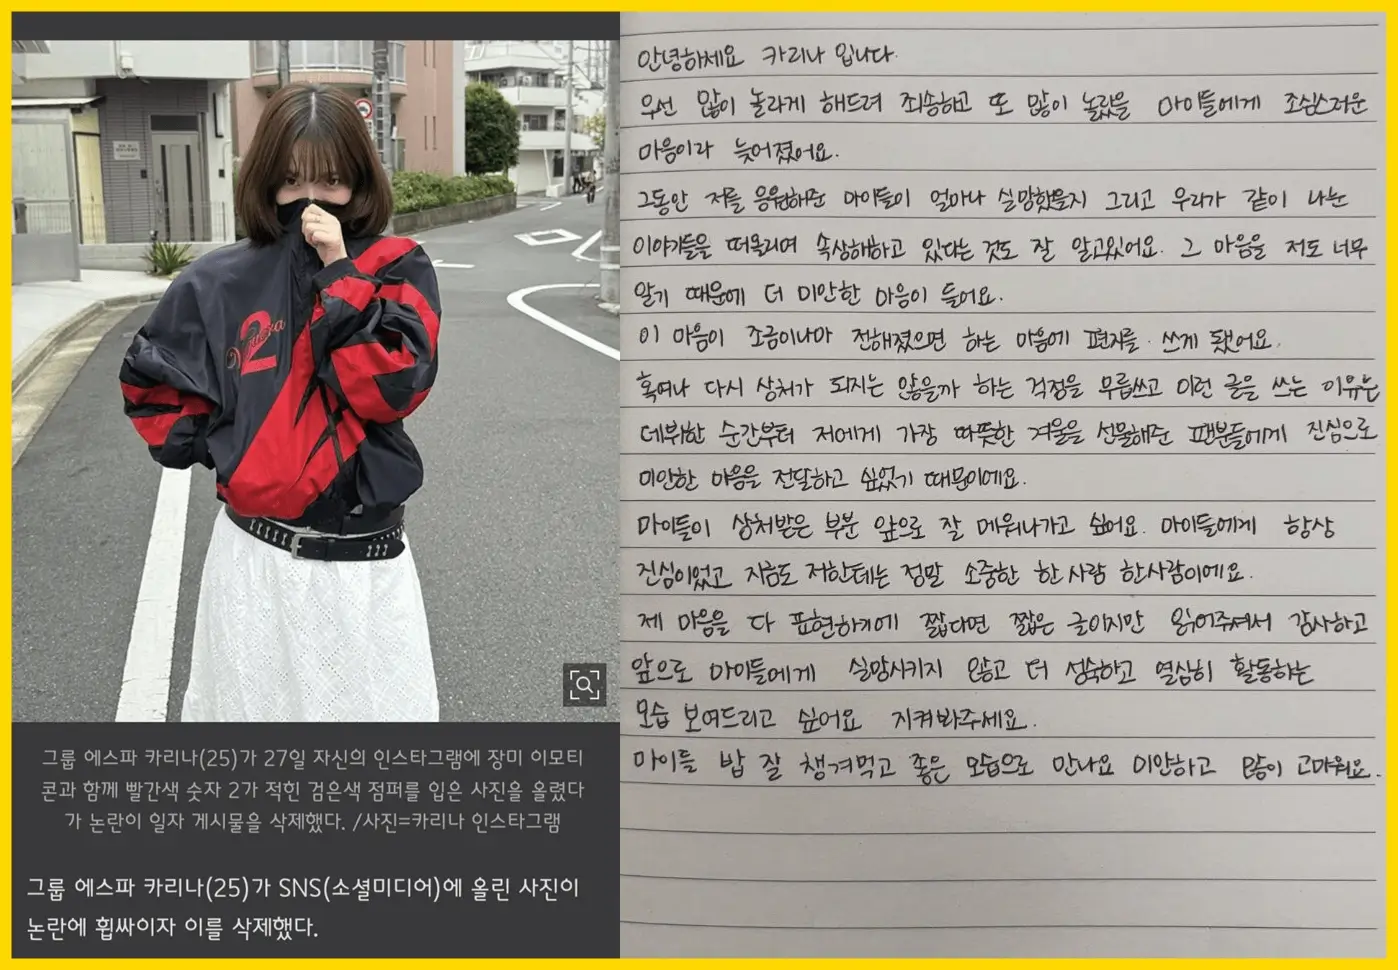 2
그룹 에스파 카리나(25)가 27일 자신의 인스타그램에 장미 이모티
콘과 함께 빨간색 숫자 2가 적힌 검은색 점퍼를 입은 사진을 올렸다
가 논란이 일자 게시물을 삭제했다. /사진=카리나 인스타그램
그룹 에스파 카리나(25)가 SNS(소셜미디어)에 올린 사진이
논란에 휩싸이자 이를 삭제했다.
안녕하세요 카리나 입니다.
우선 많이 놀라게 해드려 죄송하고 또 많이 놀랐을 마이들에게 조심스러운
마음이라 늦어졌어요.
그동안 저를 응원해준 마이들이 얼마나 실망했을지 그리고 우리가 같이 나눈
이야기들을 떠올리며 속상해하고 있다는 것도 잘 알고있어요. 그 마음을 저도 너무
알기 때문에 더 미안한 마음이 들어요.
이 마음이 조금이나마 전해졌으면 하는 마음에 편지를 쓰게 됐어요.
혹여나 다시 상처가 되지는 않을까 하는 걱정을 무릅쓰고 이런 글을 쓰는 이유는
데뷔한 순간부터 저에게 가장 따뜻한 겨울을 선물해준 팬분들에게 진심으로
미안한 마음을 전달하고 싶었기 때문이에요.
마이들이 상처받은 부분 앞으로 잘 메워나가고 싶어요. 마이들에게 항상
진심이었고 지금도 저한테는 정말 소중한 한 사람 한사람이에요.
제 마음을 다 표현하기에 짧다면 짧은 글이지만 읽어주셔서 감사하고
앞으로 마이들에게 실망시키지 않고 더 성숙하고 열심히 활동하는
모습 보여드리고 싶어요 지켜봐주세요.
마이들 밥 잘 챙겨먹고 좋은 모습으로 만나요 미안하고 많이 고마워요.